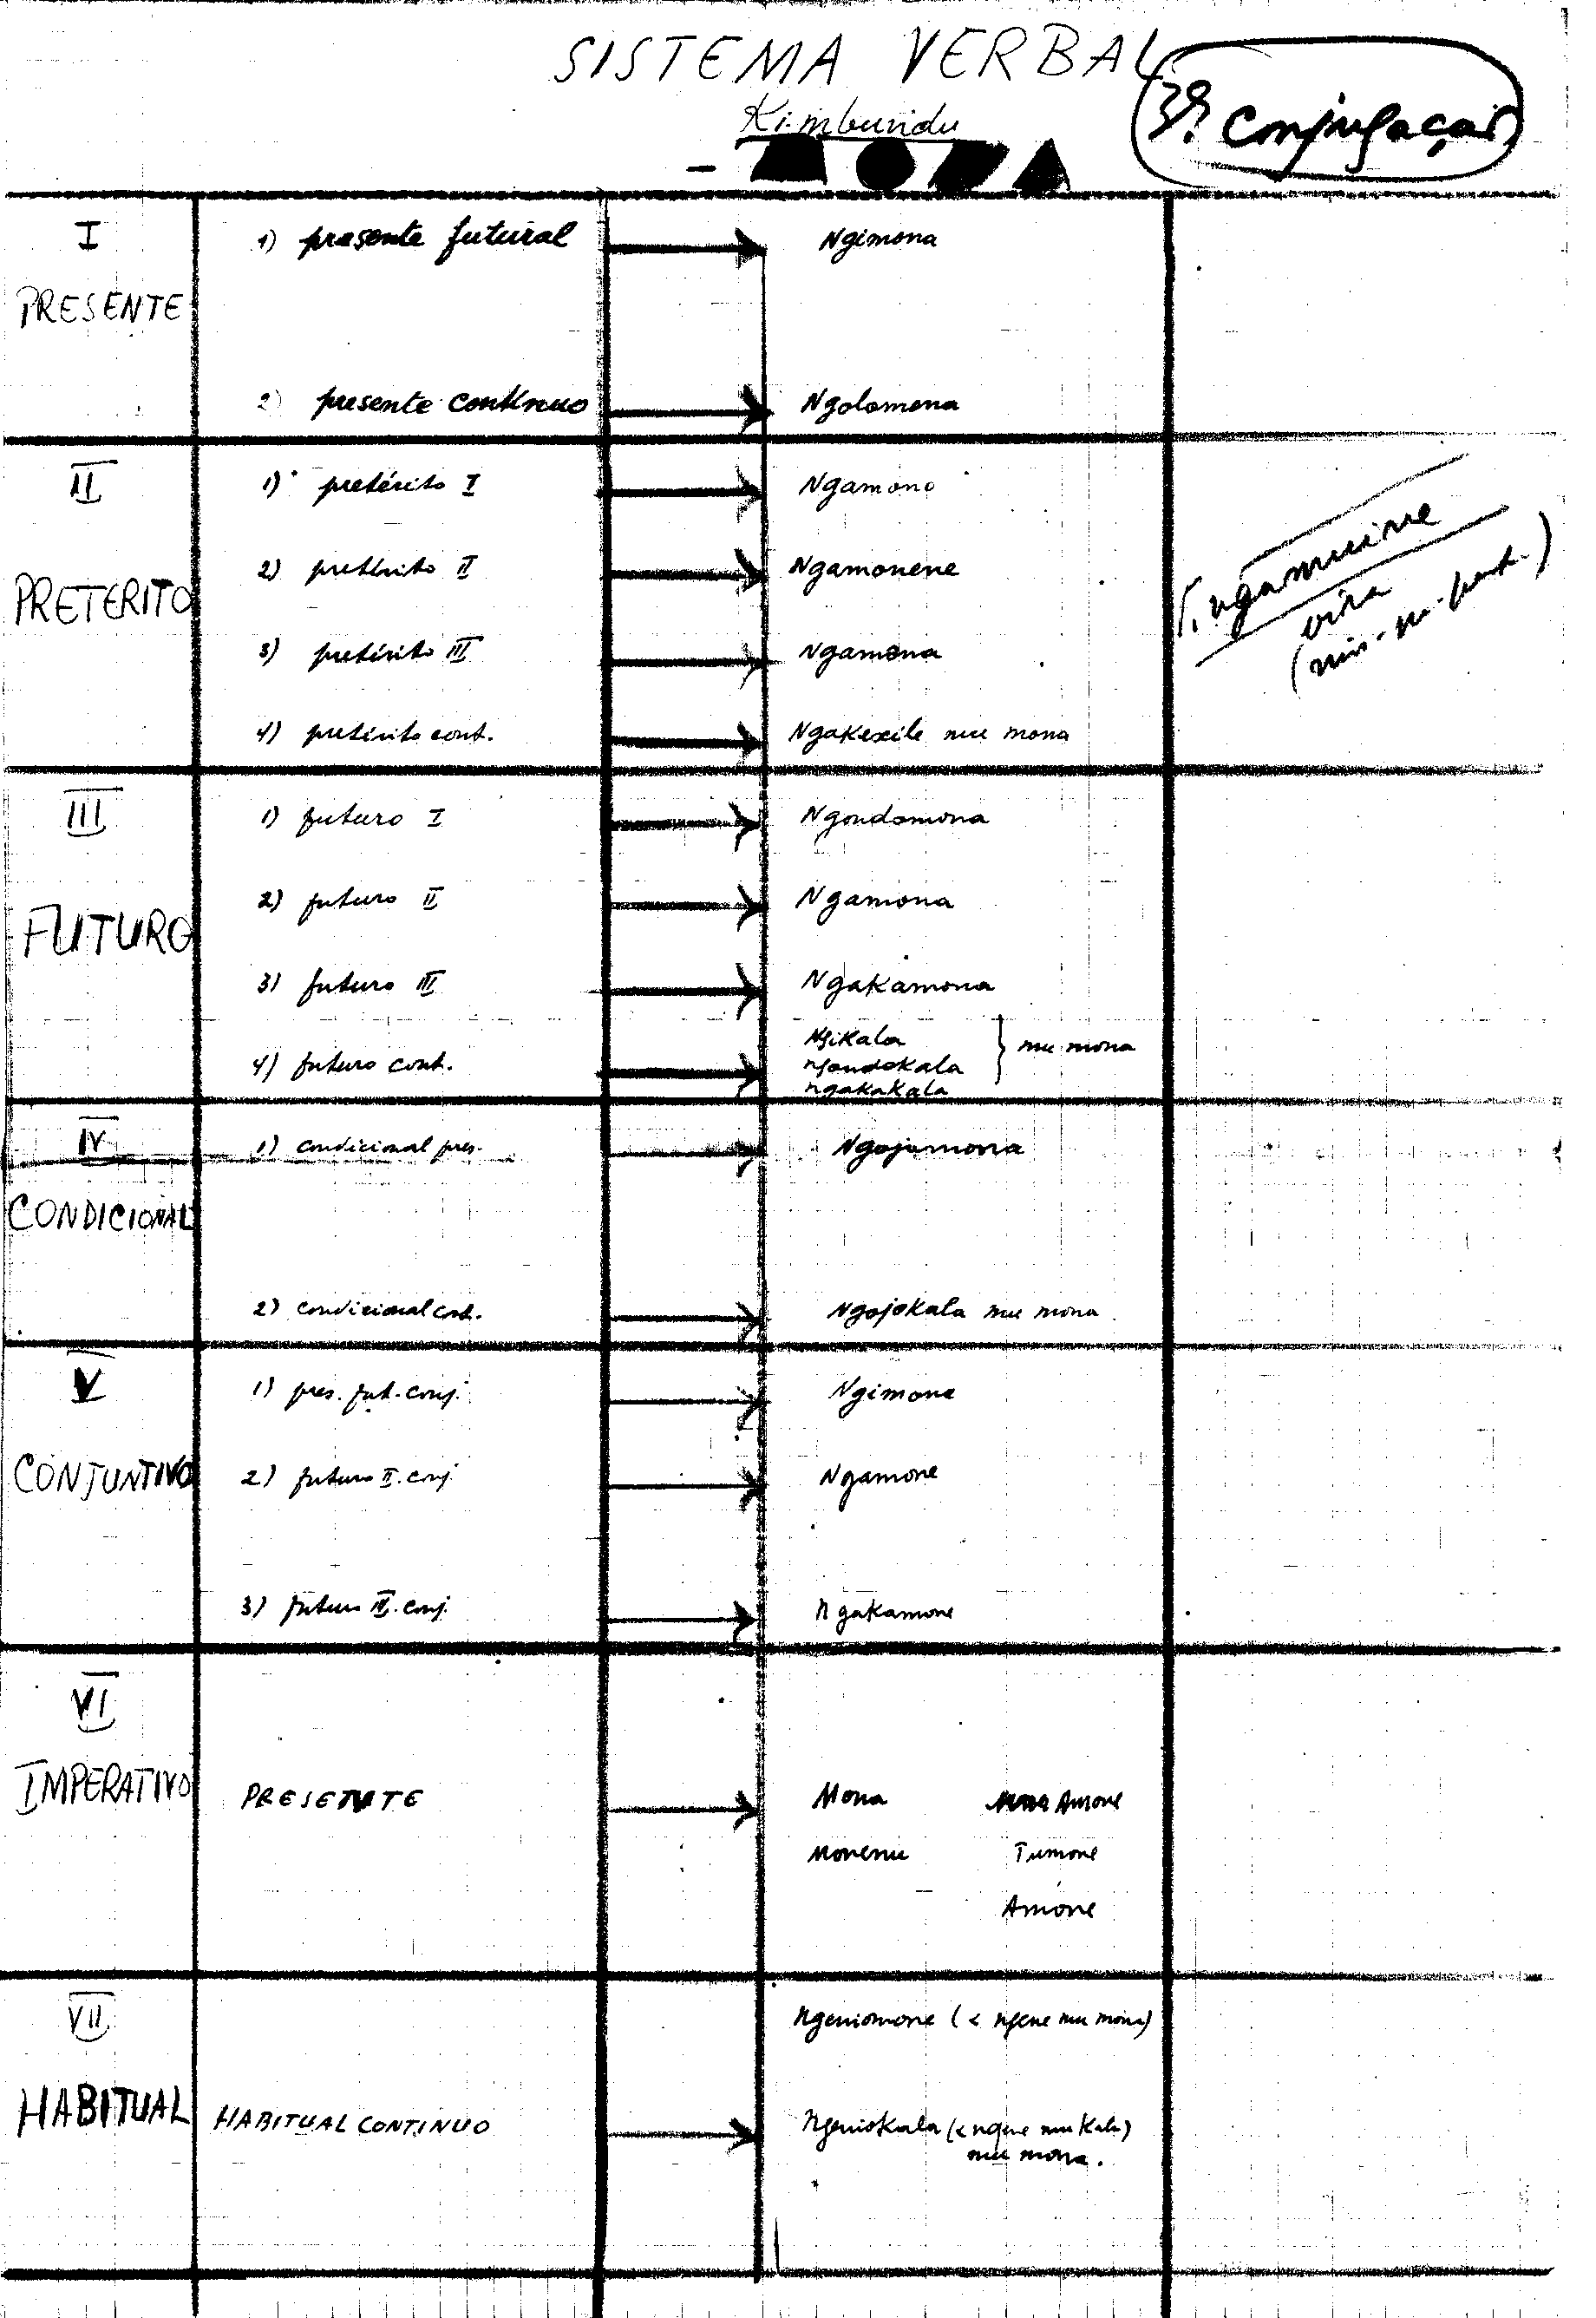 SISTEMA VERBAL
Kimbundu
3ª conjugação
- MONA
I
PRESENTE
1) presente futural Ngimona
2) presente contínuo Ngolomona
II
PRETERITO
1) pretérito I Ngamono
2) pretérito II Ngamonene
3) pretérito III Ngamona
4) pretérito cont. Ngakexile mu mona
vira
III
FUTURO
1) futuro I Ngondomona
2) futuro II Ngamona
3) futuro III Ngakamona
4) futuro cont.
Ngikala
ngondokala } mu mona
ngakakala
IV
CONDICIONAL
1) condicional pres. Ngojomona
2) condicional cont. Ngojokala mu mona
V
CONJUNTIVO
1) pres. fut. conj. Ngimone
2) futuro II. conj. Ngamone
3) futuro III. conj. Ngakamone
VI
IMPERATIVO
PRESENTE Mona Amone
Monenu Tumone
Amone
VII
HABITUAL
Ngeniomone (< ngene mu mona)
HABITUAL CONTINUO Ngeniokala (< ngene mu kala)
mu mona.